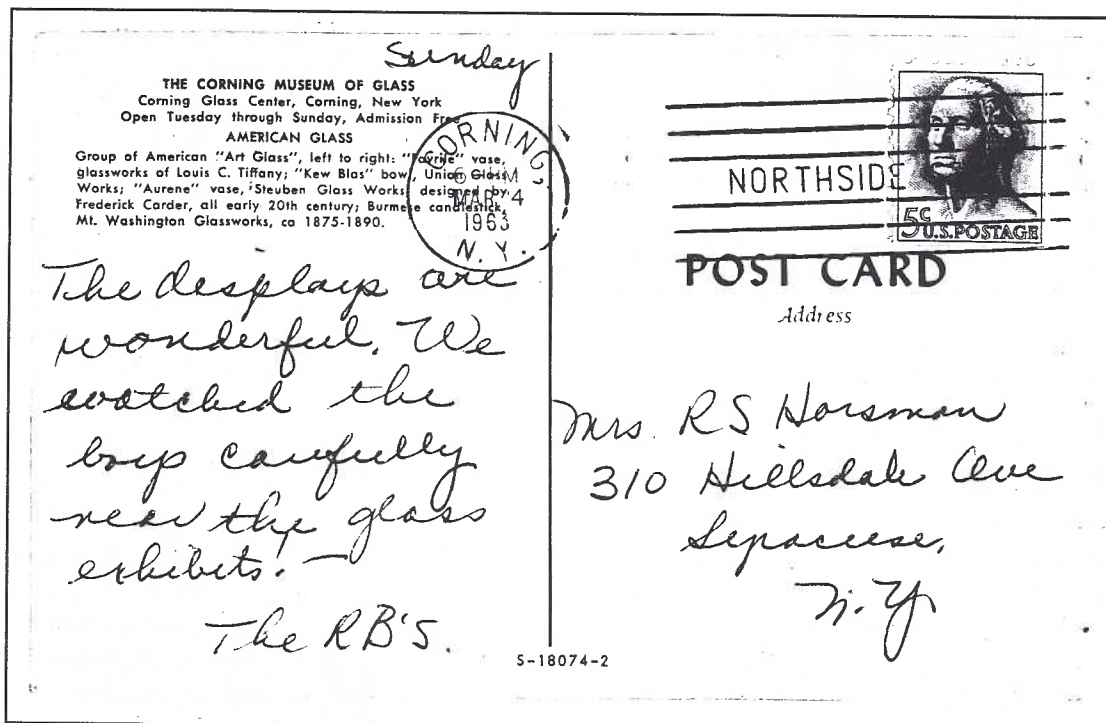 Sunday
THE CORNING MUSEUM OF GLASS
Corning Glass Center, Corning, New York
Open Tuesday through Sunday, Admission Free
AMERICAN GLASS
Group of American "Art Glass", left to right: "Favrile" vase,
glassworks of Louis C. Tiffany; "Kew Blas" bowl, Union Glass
Works; "Aurene" vase, Steuben Glass Works, designed by
Frederick Carder, all early 20th century; Burmese candlestick,
Mt. Washington Glassworks, ca 1875-1890.
CORNING,
PM
MAR 4
1963
N.Y.
The displays are
wonderful. We
watched the
boys carefully
near the glass
exhibits! —
The RB'S.
S-18074-2
NORTHSIDE
5c
U.S. POSTAGE
POST CARD
Address
Mrs. RS Horsman
310 Hillsdale Ave
Syracuse,
N.Y